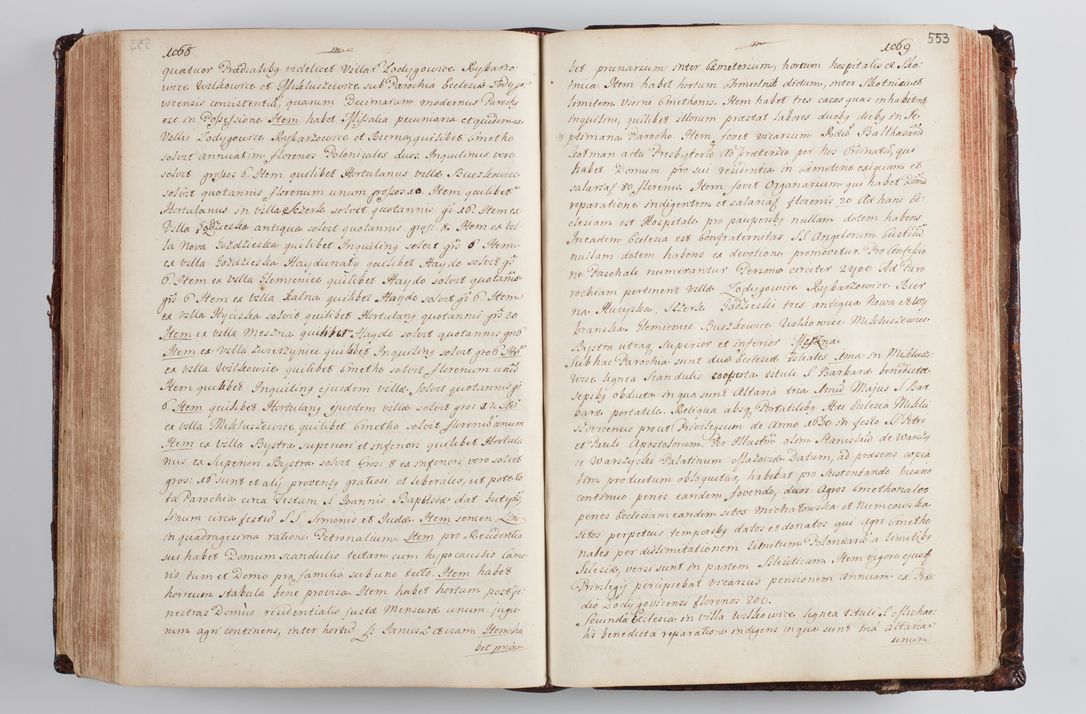 1068
quatuor Prædialibq videlicet Villar Lodygowice Rybarzo
wice Wilkowice et Mikluszewice sub Parochia Ecclesiæ Łodygo
vicensis consistentia, quarum Decimarum modernus Parochq
est in Possessione Item habet Missalia pecuniaria et quidem ex
Villis Lodygowice Rybarzowice et Bierna, quilibet Cmetho
solvit annuatim florenos Polonicales duos Inquilinus vero
solvit grossos 6 Item quilibet Hortulanus villæ Buszkowice
solvit quotannis florenum unum grossos 10. Item quilibet
Hortulanus in villa Szczerk solvit quotannis gs 10. Item ex
Villa Godzieska antiqua solvit quotannis gross 8. Item ex vil-
la Nova Godzieska quilibet Inquilinq solvit grs 6 Item
ex villa Godzieska Haydunaty quilibet Haydo solvit gs
6. Item ex villa Glemienice quilibet Haydo solvit quotanis
grs 6 Item ex villa Kalna quilibet Haydo solvit gs 6. Item
ex villa Huciska solvit quilibet Hortulanq quotannis grs 20
Item ex villa Meszna quilibet Haydo solvit quotannis gro 6
Item ex Villa Zwierzyniec quilibet Inquilinq solvit gro 6 Ite
ex villa Wilkowice quilibet Cmetho solvit florenum unū
Item quilibet Inquilinq ejusdem villæ, solvit quotannis gs
6 Item quilibet Hortulanq ejusdem villæ solvit gros: 12 Ite
ex villa Mikluszewice quilibet Cmetho solvit florenum unum
Item ex Villa Bystra superiori et inferiori quilibet Hortula
nus ex Superiori Bystra solvit Gros: 8 ex inferiori vero solvit
gros: 16 sunt et alij proventq gratiosi et liberales, ut pote to
ta Parochia circa Festum S. Joannis Baptistæ dat butyra
linum circa festū S.S. Simonis et Judæ. Item semen Lini
in quadragesima ratione Petronalium. Item pro Residentia
sui habet Domum scandulis tectam cum hypocaustis Came
ris tum et Domo pro familia sub uno tecto. Item habet
horreum stabula bene provisa Item habet hortum post fe
nestras Domûs residentialis justæ Mensuræ unum juge
rum agri continens, inter hortū L: Janusz et viam Item ha
bet prunar
1069
553
bet prunarium inter Cæmeterium, hortum hospitalis et Sko
tnica Item habet hortum Chmielnik dictum, inter Skotnicam et
limitem Vicini Cmethonis. Item habet tres casas quas inhabitant
inquilini, quilibet illorum præstat labores duobq diebq in Se
ptimana Parocho. Item fovet vicarium Rdū Balthasarū
Kotman actu Presbyterū Ao præterito per nos Ordinatū, qui
habet Domum pro sui residentia in Cæmeterio exiguam et
salariū 80 florenis. Item fovet Organarium qui habet Domū
reparatione indigentem et salariū florenis 20 Ad hanc Ec
clesiam est Hospitale pro pauperibq nullam dotem habens
In eadem Ecclesia est Confraternitas SS Angelorum Custodū
nullam dotem habens ex devotione promovetur Pro Confessio
ne Paschale numerantur Personæ circiter 2400 Ad Paro
chiam pertinent Villæ Lodygowice Rybarzowice Bier
na Huciska, Szczerk Godzieski tres antiqua Nowa et Wy
branska Glemieniec Buszkowice Wilkowice Mikluszewice
Bystra utraq Superior et inferior Meszna
Sub hac Parochia sunt duæ Ecclesiæ filiales una in Mikluszo
wice lignea Scandulis cooperta tituli S. Barbaræ benedictæ
sepibq obducta in qua sunt Altaria tria Unū Majus S. Bar
baræ portatile. Reliqua absq Portatilibq Hæc Ecclesia Miklu
szovicensis prout Privilegium de Anno 1630 in festo S. Petri
et Pauli Apostolorum. Per Illustrū olim Stanislaū de Warszy
ce Warszycki Palatinum Masoviæ Datum, ad præsens copia
tim productum obloquitur, habebat pro sustentando vicario
continuo penes eandem fovendo, duos Agros Cmethonales
penes Ecclesiam eandem sitos Michatowska et Niemcowska
sitos perpetuis temporibq datos et donatos qui Agri Cmetho
nales per dissmutationem limitum Poloniarū a limitibq
Silesiæ, versi sunt in partem Silesiticam. Item vigore ejusq
Privilegij percipiebat vicarius pensionem Annuam ex Præ
dio Lodygovicensi florenos 200.
Secunda Ecclesia in villa Wilkowice lignea tituli S. Michae
lis benedicta reparatione indigens in qua sunt tria Altaria
unum